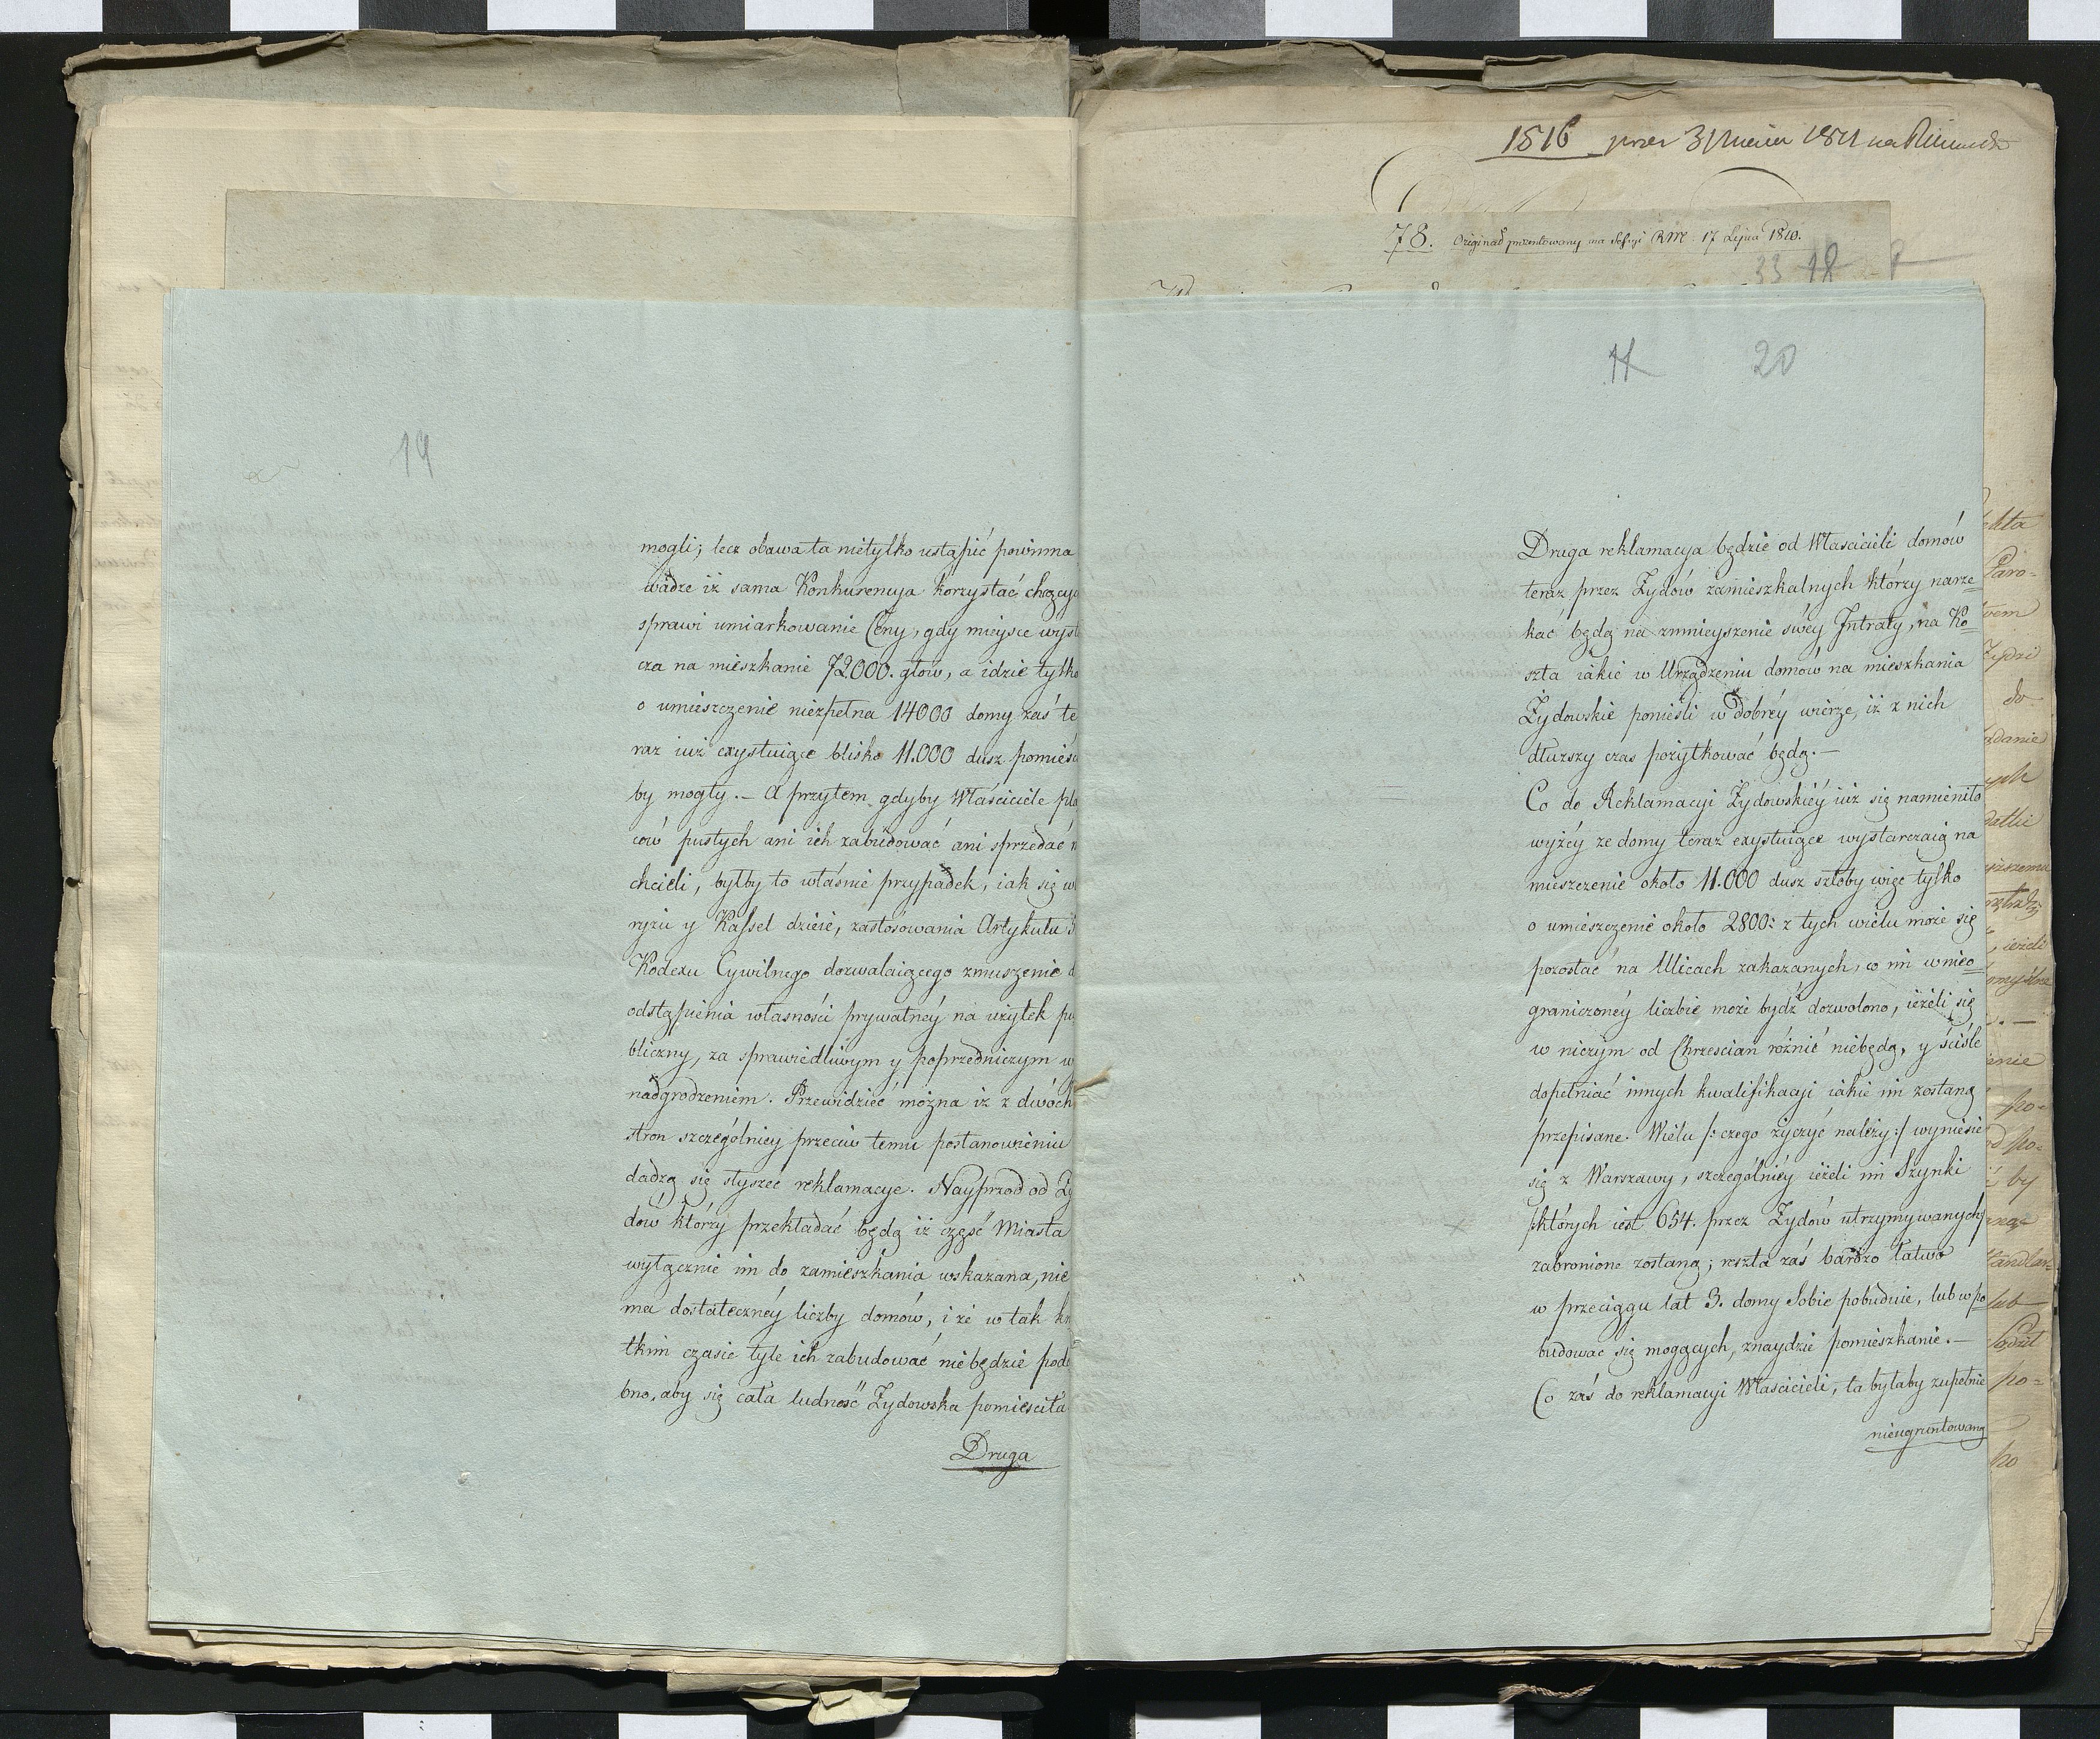 19
mogli; lecz obawa ta nietylko ustąpić powinna
wadze iż sama Konkurencya korzystać chcący
sprawi umiarkowanie Ceny, gdy mieysce wyst
cza na mieszkanie 72000. głow, a idzie tylko
o umieszczenie niezpełna 14000 domy zaś te
raz iuż exystuiące blisko 11.000 dusz pomieś
by mogły. — A przytem gdyby Właściciele pla
ców pustych ani ich zabudować ani sprzedać n
chcieli, byłby to właśnie przypadek, iak się w
ryżu y Kassel dzieie, zastosowania Artykułu 5
Kodexu Cywilnego dozwalaiącego zmuszenie d
odstąpienia własności prywatnéy na użytek pu
bliczny, za sprawiedliwym y poprzedniczym w
nadgrodzeniem. Przewidzieć można iż z dwóch
stron szczególniey przeciw temu postanowieniu
dadzą się słyszeć reklamacye. Nayprzod od Ży
dów którzy przekładać będą iż część Miasta
wyłącznie im do zamieszkania wskazana, nie
ma dostatecznéy liczby domów, i że w tak kr
tkim czasie tyle ich zabudować niebędzie podo
bno, aby się cała ludność Żydowska pomieściła
Druga
1816
78. Originał prezentowany na Sessyi RM. 17 Lipca 1810.
33 18
11 20
Druga reklamacya będzie od Właścicieli domów
teraz przez Żydów zamieszkalnych którzy narze=
kać będą na zmnieyszenie swéy Intraty, na Ko=
szta iakie w Urządzeniu domów na mieszkania
Żydowskie ponieśli w dobréy wierze, iż z nich
dłuższy czas pożytkować będą. —
Co do Reklamacyi Żydowskiéy iuż się namieniło
wyżéy że domy teraz exystuiące wystarczaią na
mieszczenie około 11.000 dusz szłoby więc tylko
o umieszczenie około 2800: z tych wielu może się
pozostać na Ulicach zakazanych, co im w nieo=
graniczonéy liczbie może bydź dozwolono, ieżeli się
w niczym od Chrześcian różnić niebędą, y ściśle
dopełniać innych kwalifikacyi iakie im zostaną
przepisane. Wielu /: czego życzyć należy :/ wyniesie
się z Warszawy, szczególniéy ieżeli im Szynki
/których iest 654. przez Żydów utrzymywanych/
zabronione zostaną; reszta zaś bardzo łatwo
w przeciągu lat 3. domy Sobie pobuduie, lub w po
budować się mogących, znaydzie pomieszkanie. —
Co zaś do reklamacyi Właścicieli, ta byłaby zupełnie
nieugruntowaną